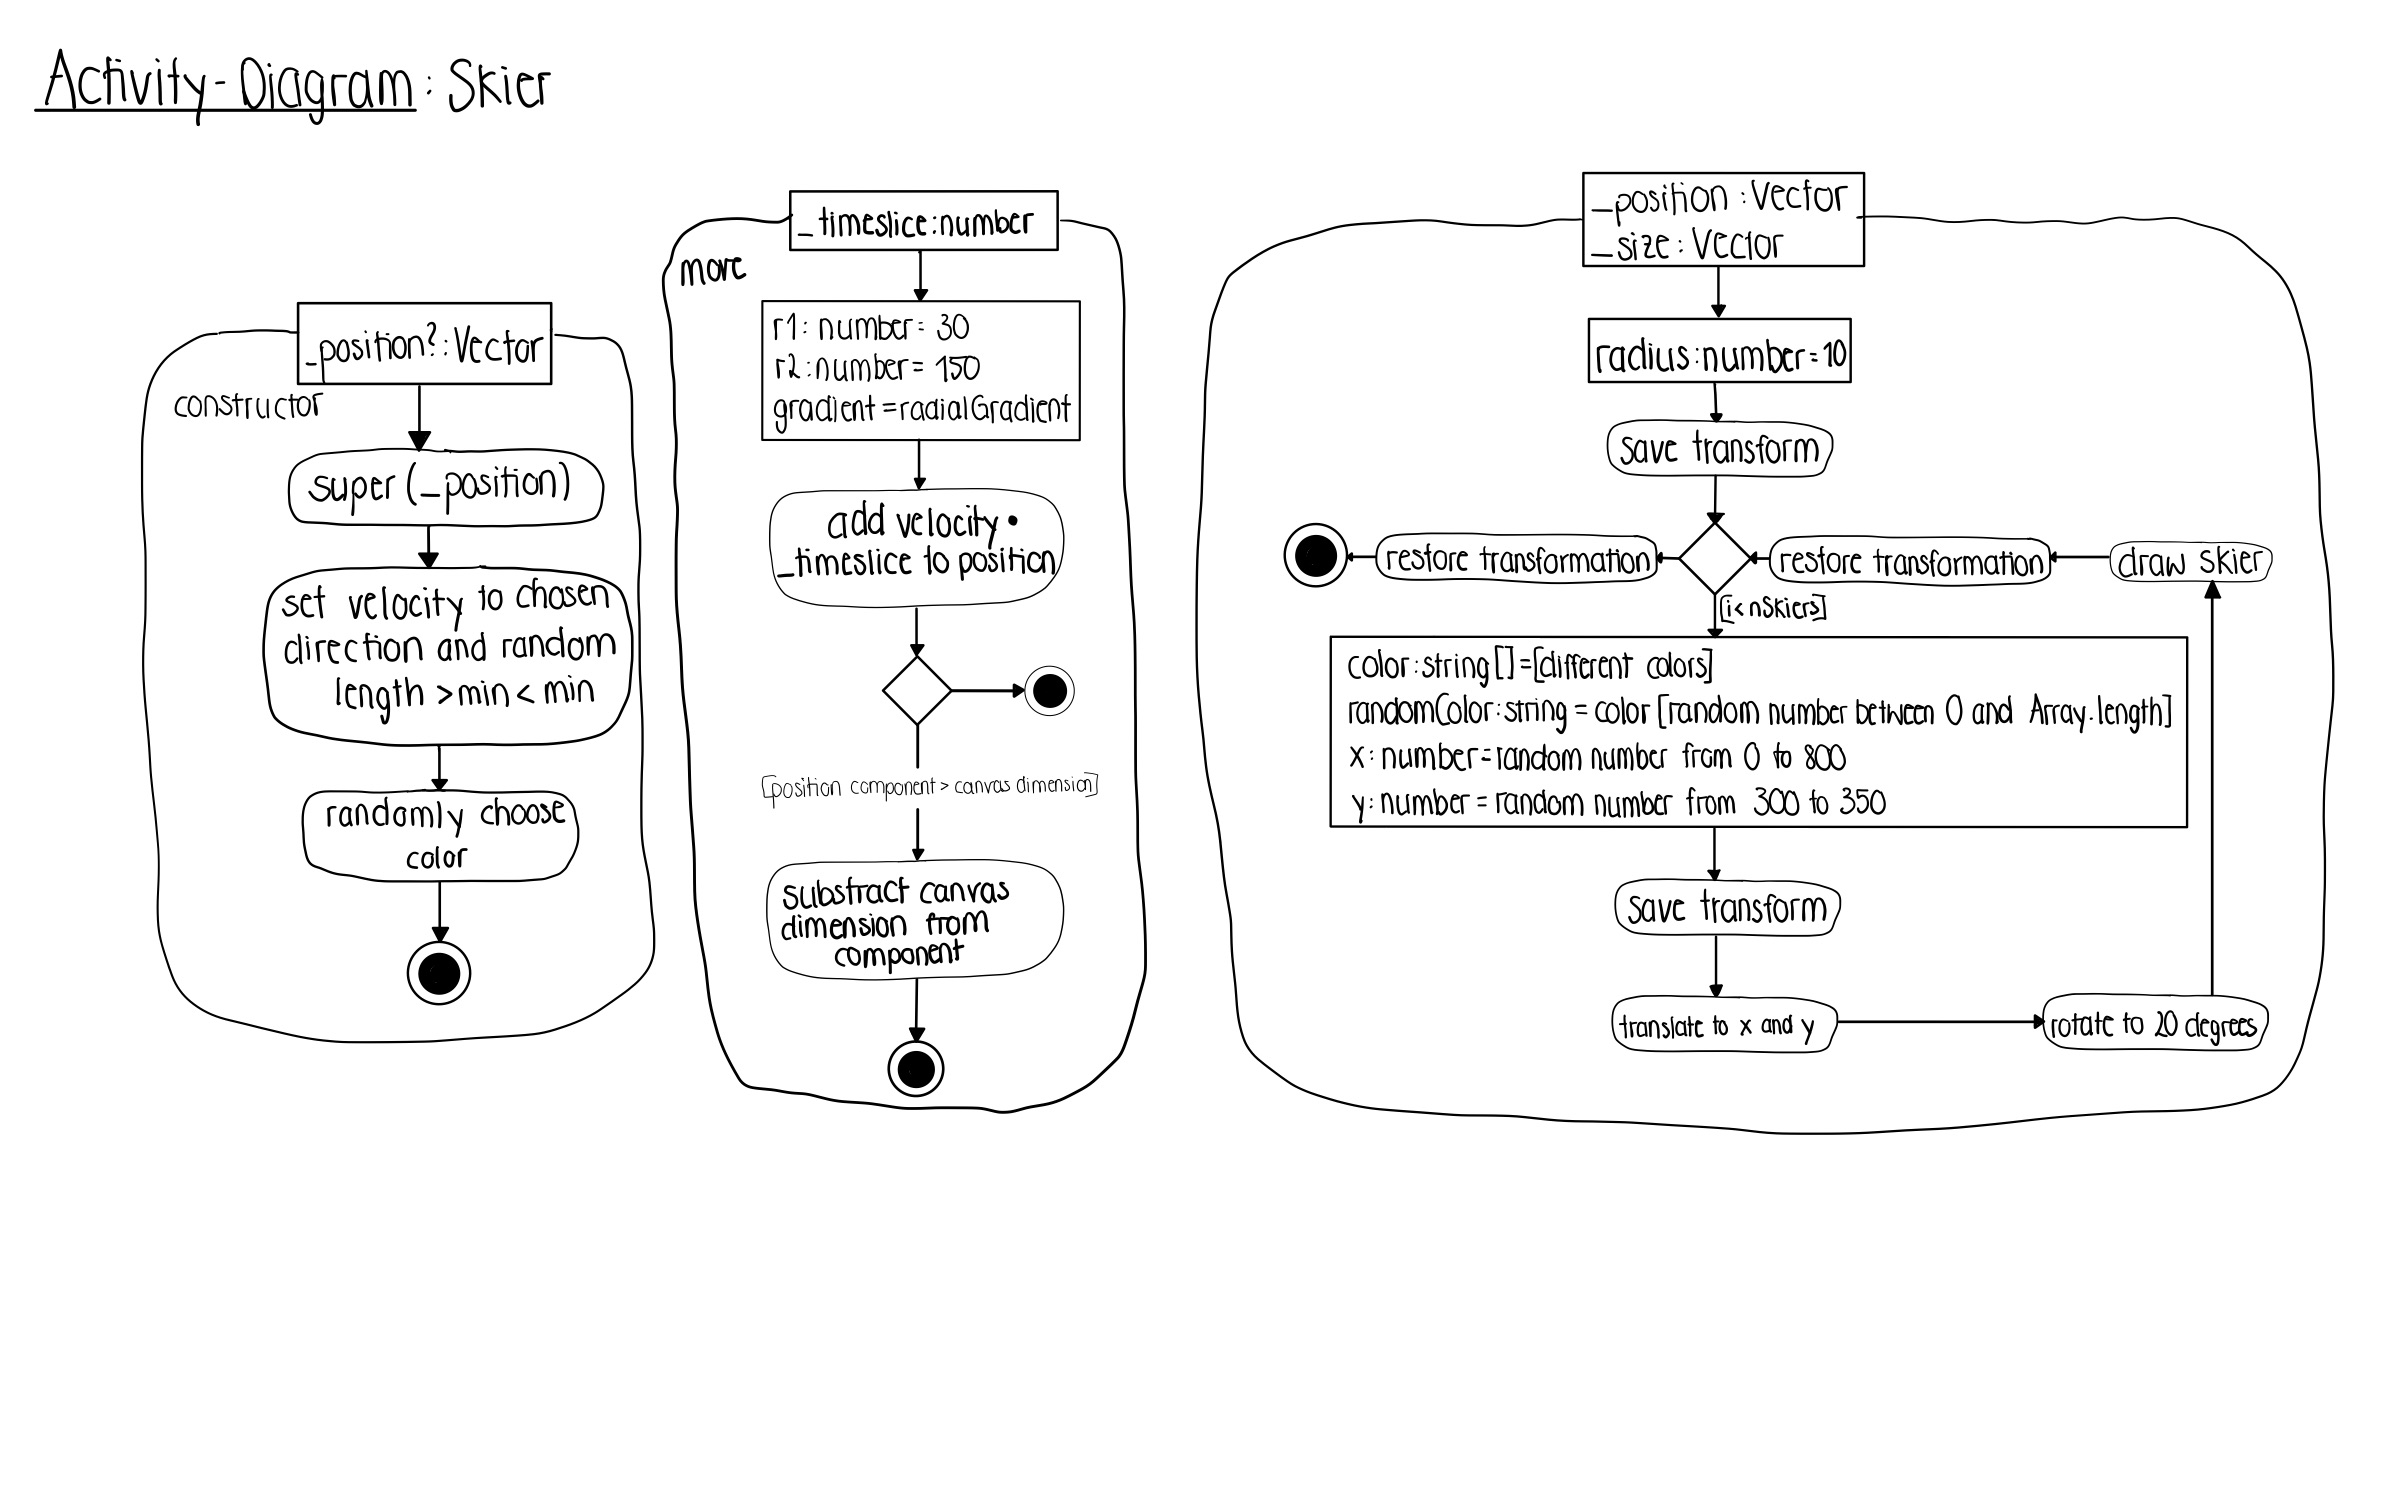 Activity-Diagram: Skier
_position?: Vector
constructor
super (_position)
set velocity to chosen
direction and random
length > min < min
randomly choose
color
_timeslice: number
more
r1: number = 30
r2: number = 150
gradient = radialGradient
add velocity •
_timeslice to position
[position component > canvas dimension]
substract canvas
dimension from
component
_position: Vector
_size: Vector
radius: number = 10
save transform
restore transformation
restore transformation
draw skier
[i < nSkiers]
color: string[] = [different colors]
randomColor: string = color [random number between 0 and Array.length]
x: number = random number from 0 to 800
y: number = random number from 300 to 350
save transform
translate to x and y
rotate to 20 degrees